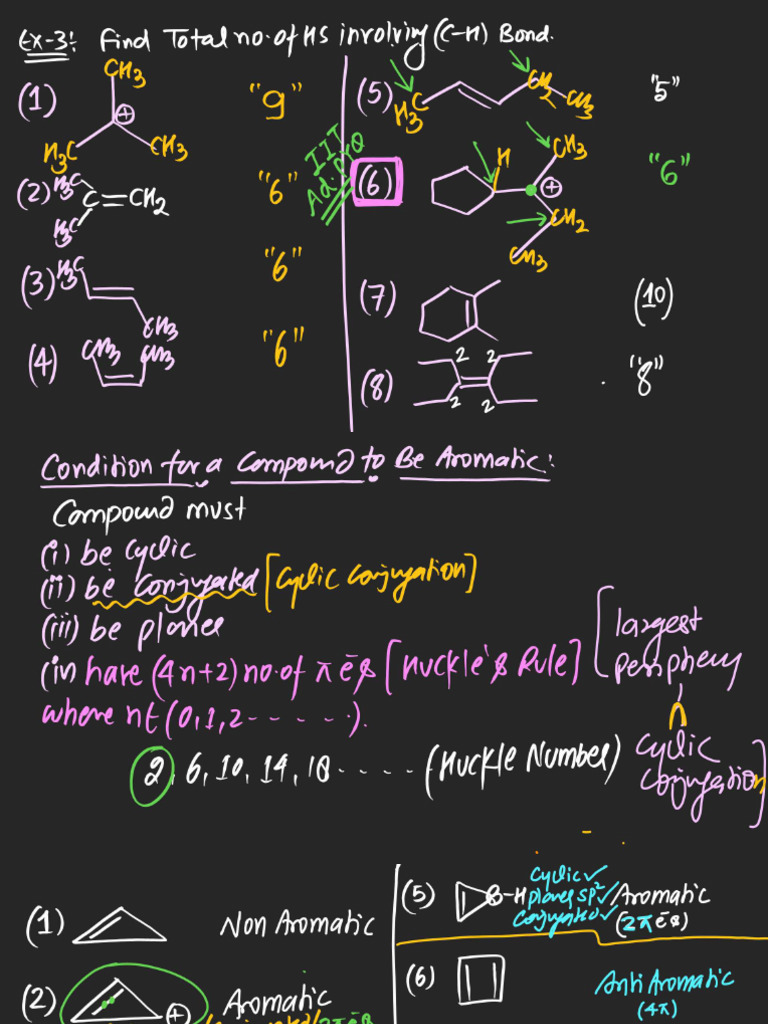 Ex-3: Find Total no. of HS involving (C-H) Bond.
(1) CH3 ⊕ H3C CH3 "9"
(2) H3C C=CH2 H3C "6"
(3) H3C CH3 "6"
(4) CH3 CH3 "6"
IIT Ad. PYQ
(5) H3C CH2 CH3 "5"
(6) H CH3 ⊕ CH2 CH3 "6"
(7) (10)
(8) 2 2 2 2 "8"
Condition for a Compound to Be Aromatic:
Compound must
(i) be cyclic
(ii) be Conjugated [Cyclic Conjugation]
(iii) be planer
(iv have (4n+2) no. of π ēs [Huckle's Rule]
where n∈(0,1,2-----).
[largest periphery
cyclic conjugation]
2, 6, 10, 14, 18 .... (Huckle Number)
(1) Non Aromatic
(2) ⊕ Aromatic
(5) B-H Cyclic✓ planer sp2✓ Conjugated✓ Aromatic
(2π ēs)
(6) Anti Aromatic
(4π)